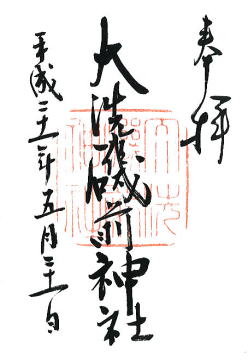 奉拝
大洗磯前神社
平成二十一年五月二十一日